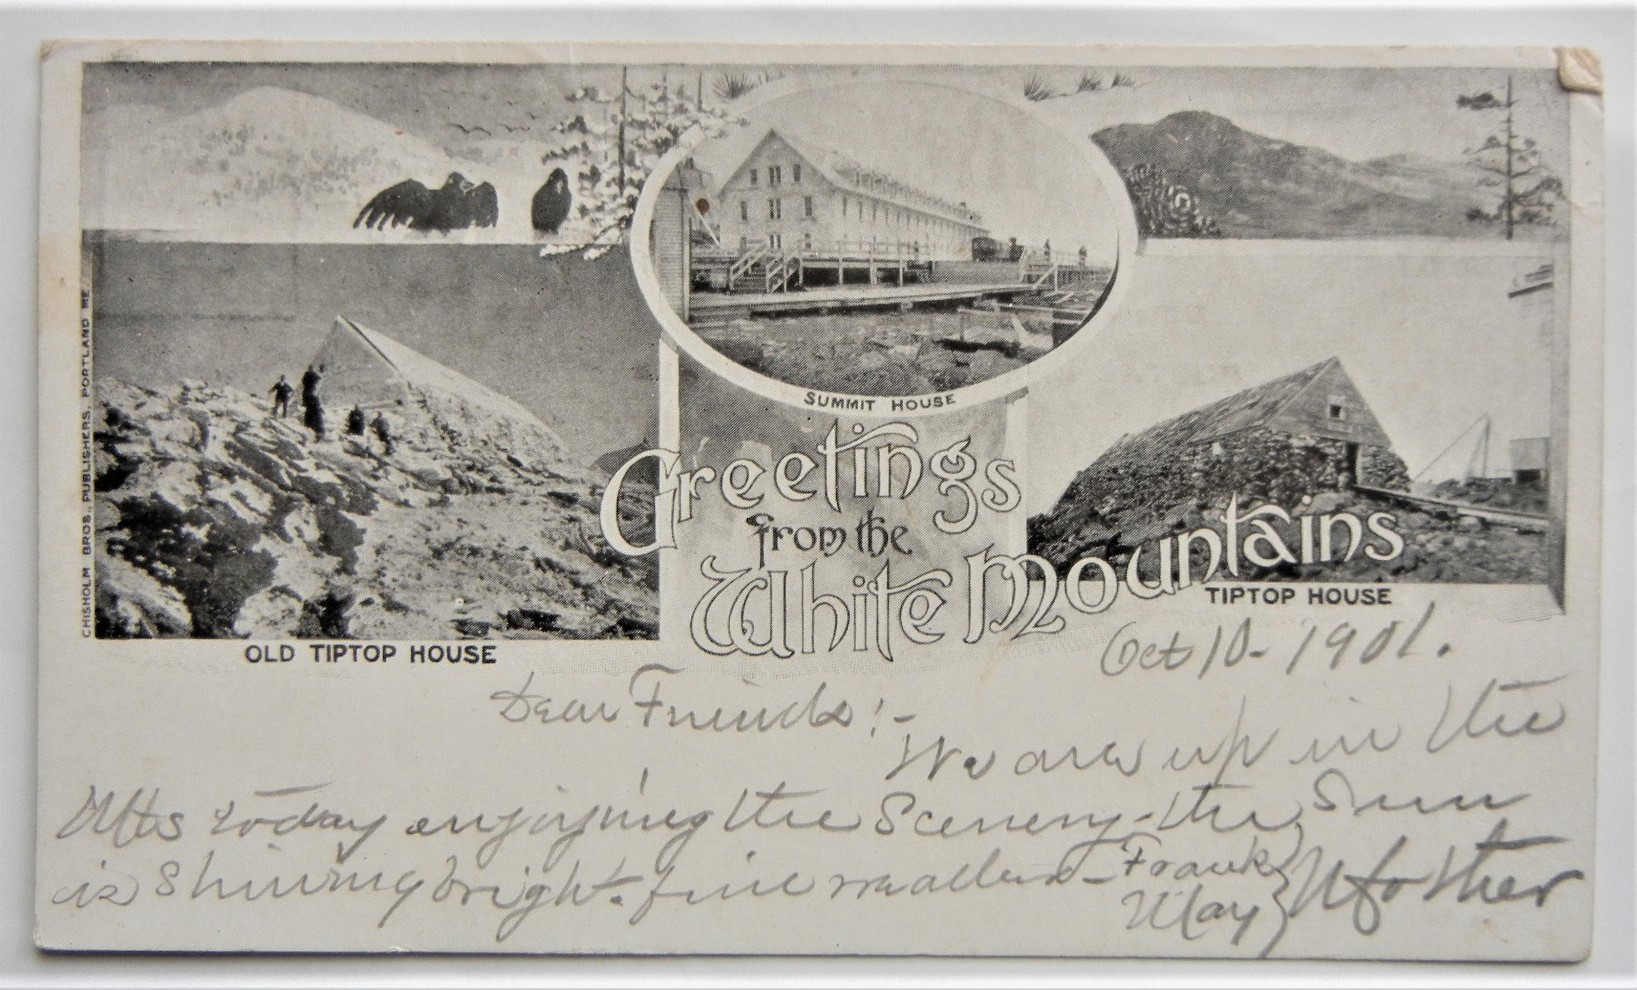 CHISHOLM BROS., PUBLISHERS, PORTLAND ME.
SUMMIT HOUSE
Greetings
from the
White Mountains
OLD TIPTOP HOUSE
TIPTOP HOUSE
Oct 10 - 1901.
Dear Friends! -
We are up in the
Mts today enjoying the Scenery - the Sun
is Shining bright. fine - Frank
May } Mother